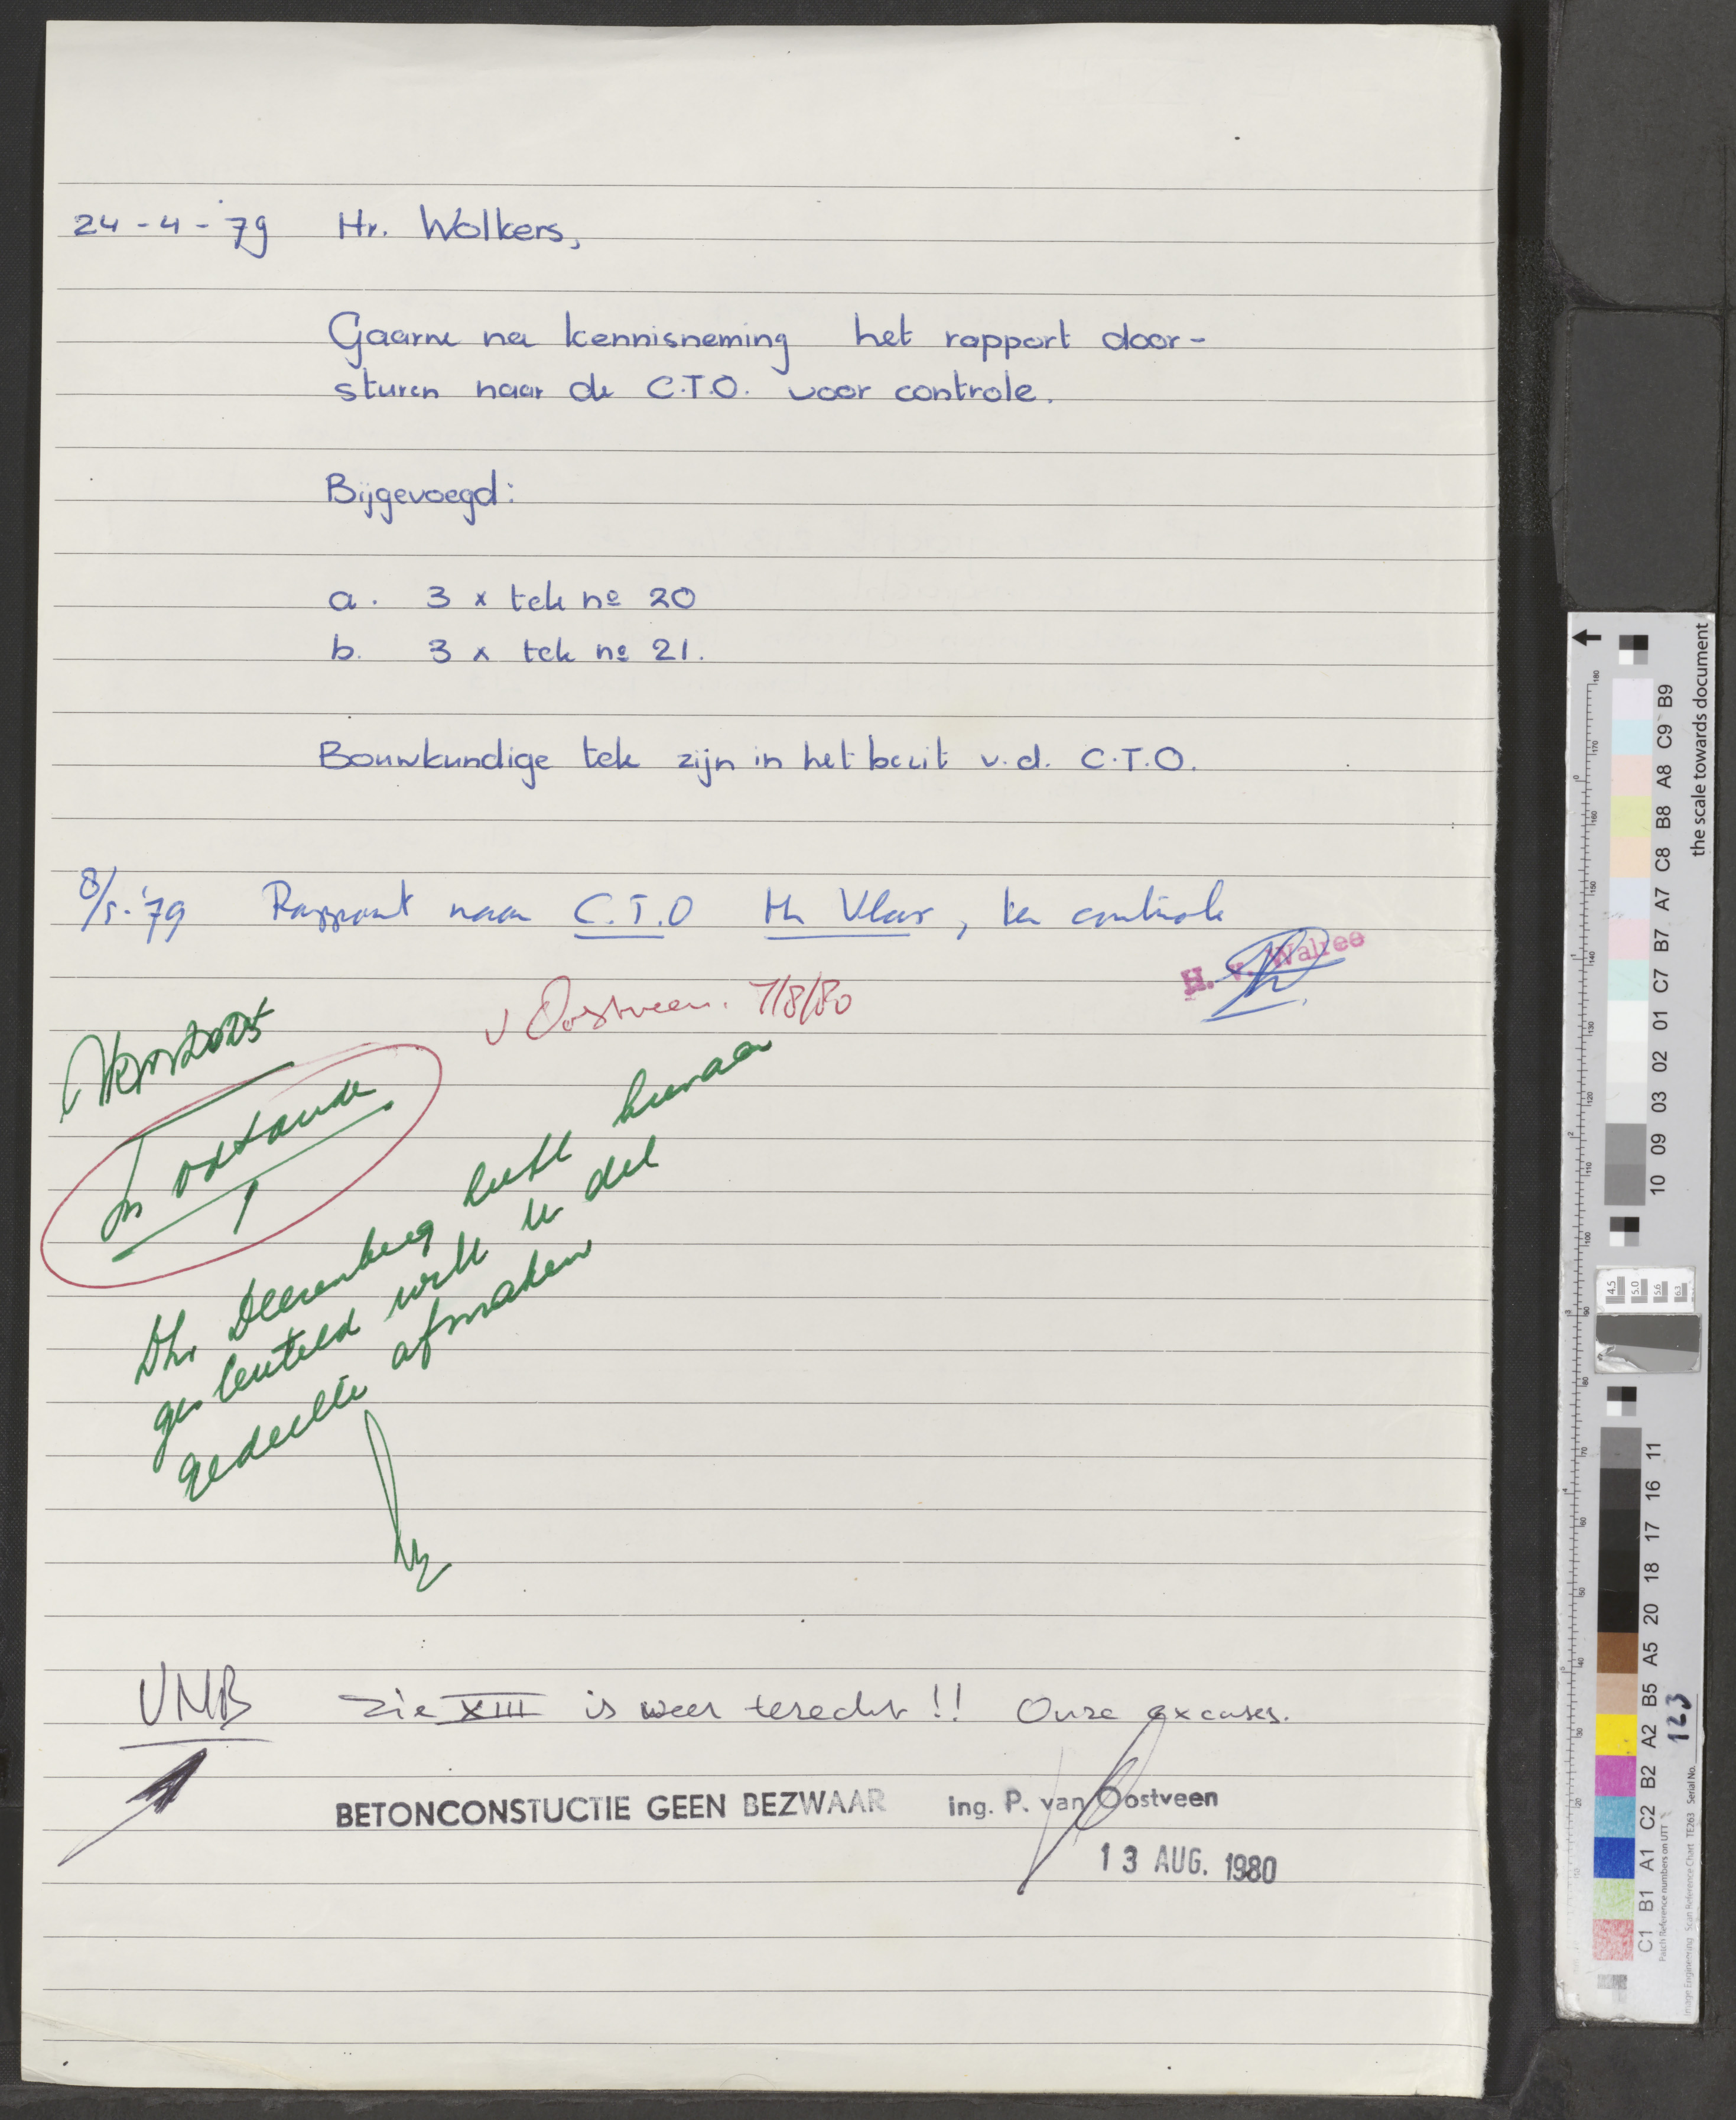 24-4-'79 Hr. Wolkers,
Gaarne na kennisneming het rapport door-
sturen naar de C.T.O. voor controle.
Bijgevoegd:
a. 3 x tek nº 20
b. 3 x tek nº 21.
Bouwkundige tek zijn in het bezit v.d. C.T.O.
8/5-'79 Rapport naar C.T.O Hr Vlas, ter controle
H. v. Walree
v Oostveen. 7/8/80
Dhr heeft hieraan
gesleuteld wilt u dit
gedeelte afmaken
VMB zie XIII is weer terecht!! Onze excuses.
BETONCONSTUCTIE GEEN BEZWAAR ing. P. van Oostveen
13 AUG. 1980
the scale towards document
B9
C9
A8
B8
C8
A7
B7
C7
01
02
03
09
10
11
16
17
18
20
A5
B5
A2
B2
C2
A1
B1
C1
Patch Reference numbers on UTT
Image Engineering Scan Reference Chart TE263 Serial No. 123